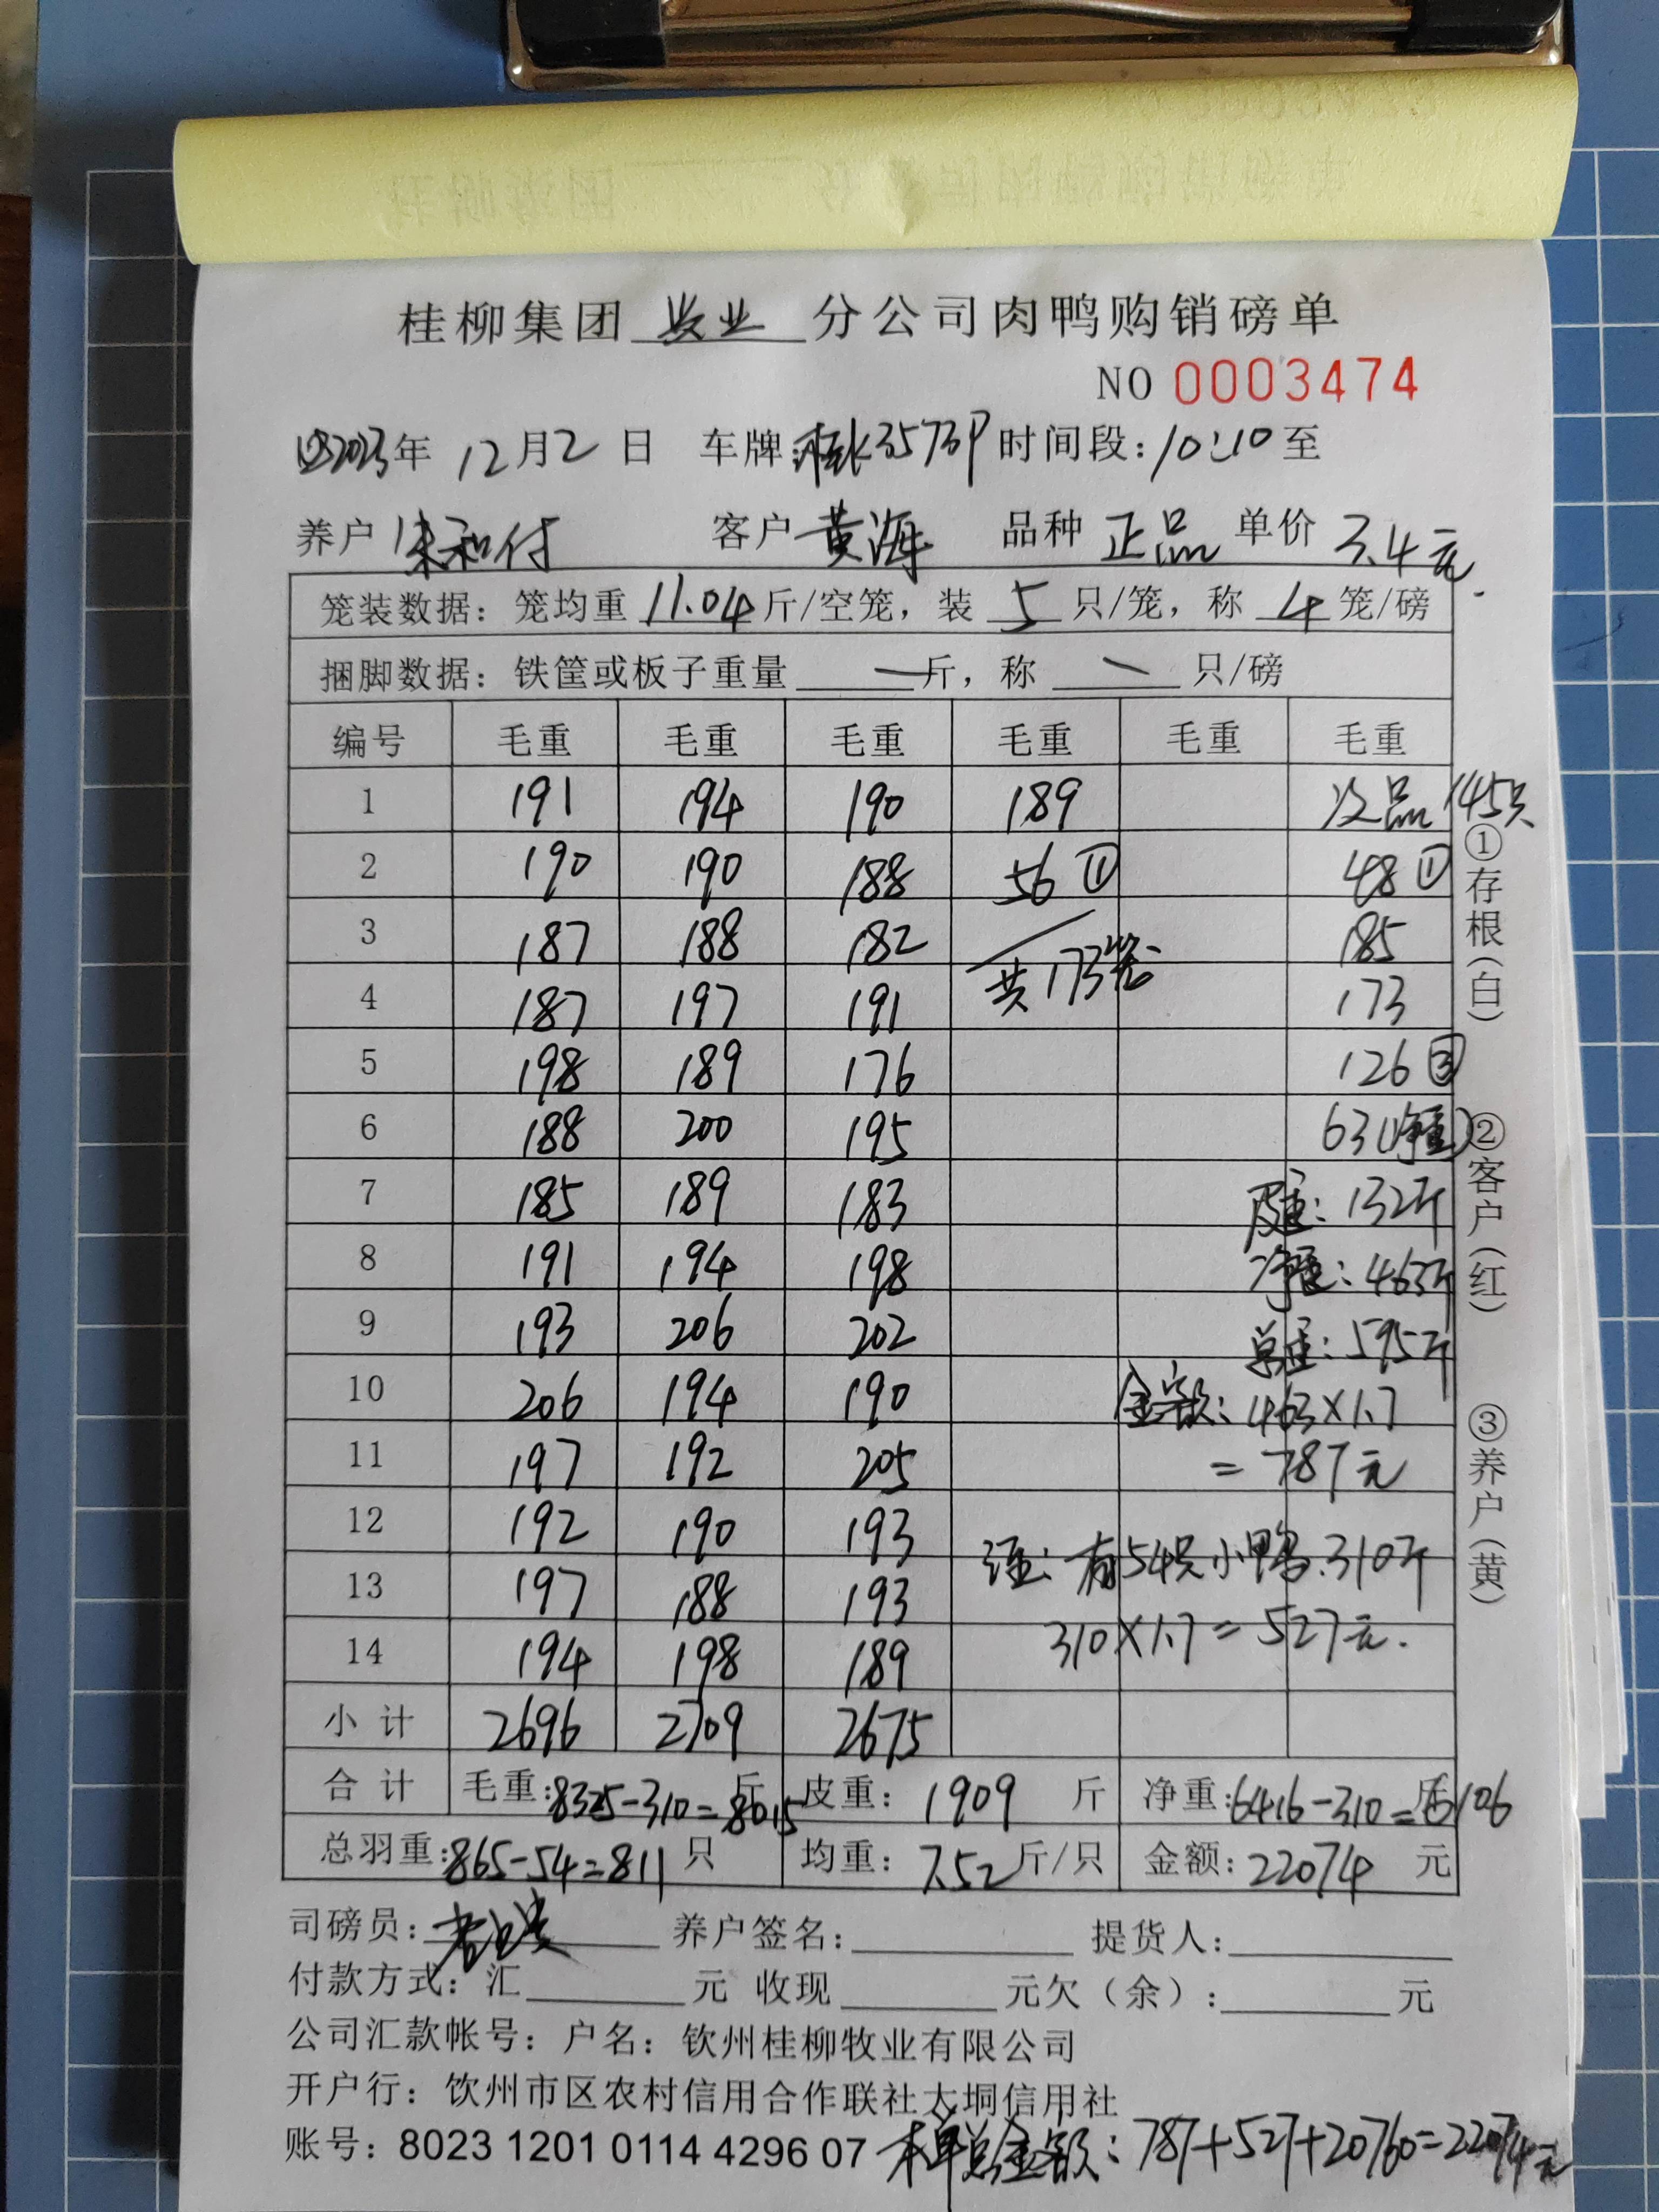 桂柳集团 兴业 分公司肉鸭购销磅单
NO 0003474
2023年 12月2日 车牌:桂K3573P 时间段:10:10至
养户 和付 客户 黄海 品种 正品 单价 3.4元
笼装数据: 笼均重 11.04 斤/空笼, 装 5 只/笼, 称 4 笼/磅
捆脚数据: 铁筐或板子重量 — 斤, 称 — 只/磅
编号 毛重 毛重 毛重 毛重 毛重 毛重
1 191 194 190 189 次品145只
2 190 190 188 56① 48①
3 187 188 182 185
共173笼
4 187 197 191 173
5 198 189 176 126③
6 188 200 195 63(净重)
7 185 189 183 皮重:132斤
8 191 194 198 净重:463斤
9 193 206 202 总重:595斤
10 206 194 190 金额:463×1.7
11 197 192 205 =787元
12 192 190 193 注:有54只小鸭.310斤
13 197 188 193
14 194 198 189 310×1.7=527元.
小计 2696 2709 2675
合计 毛重:8325-310=8015斤 皮重: 1909 斤 净重:6416-310=6106斤
总羽重:865-54=811只 均重: 7.52斤/只 金额:22074 元
司磅员: 养户签名: 提货人:
付款方式: 汇 元 收现 元欠(余): 元
公司汇款帐号: 户名: 钦州桂柳牧业有限公司
开户行: 饮州市区农村信用合作联社大垌信用社
账号: 8023 1201 0114 4296 07 本单总金额:787+527+20760=22074元
①存根(白)
②客户(红)
③养户(黄)